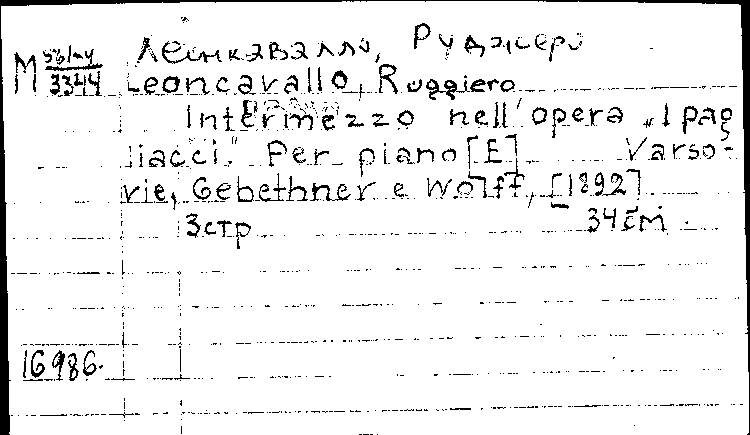 М Леонкавалло, Руджеро
3344 Leoncavallo, Ruggiero
Intermezzo nell'opera „I pag
liacci." Per piano [E] Varso-
vie, Gebethner e Wolff, [1892]
3стр 34см.
16986.